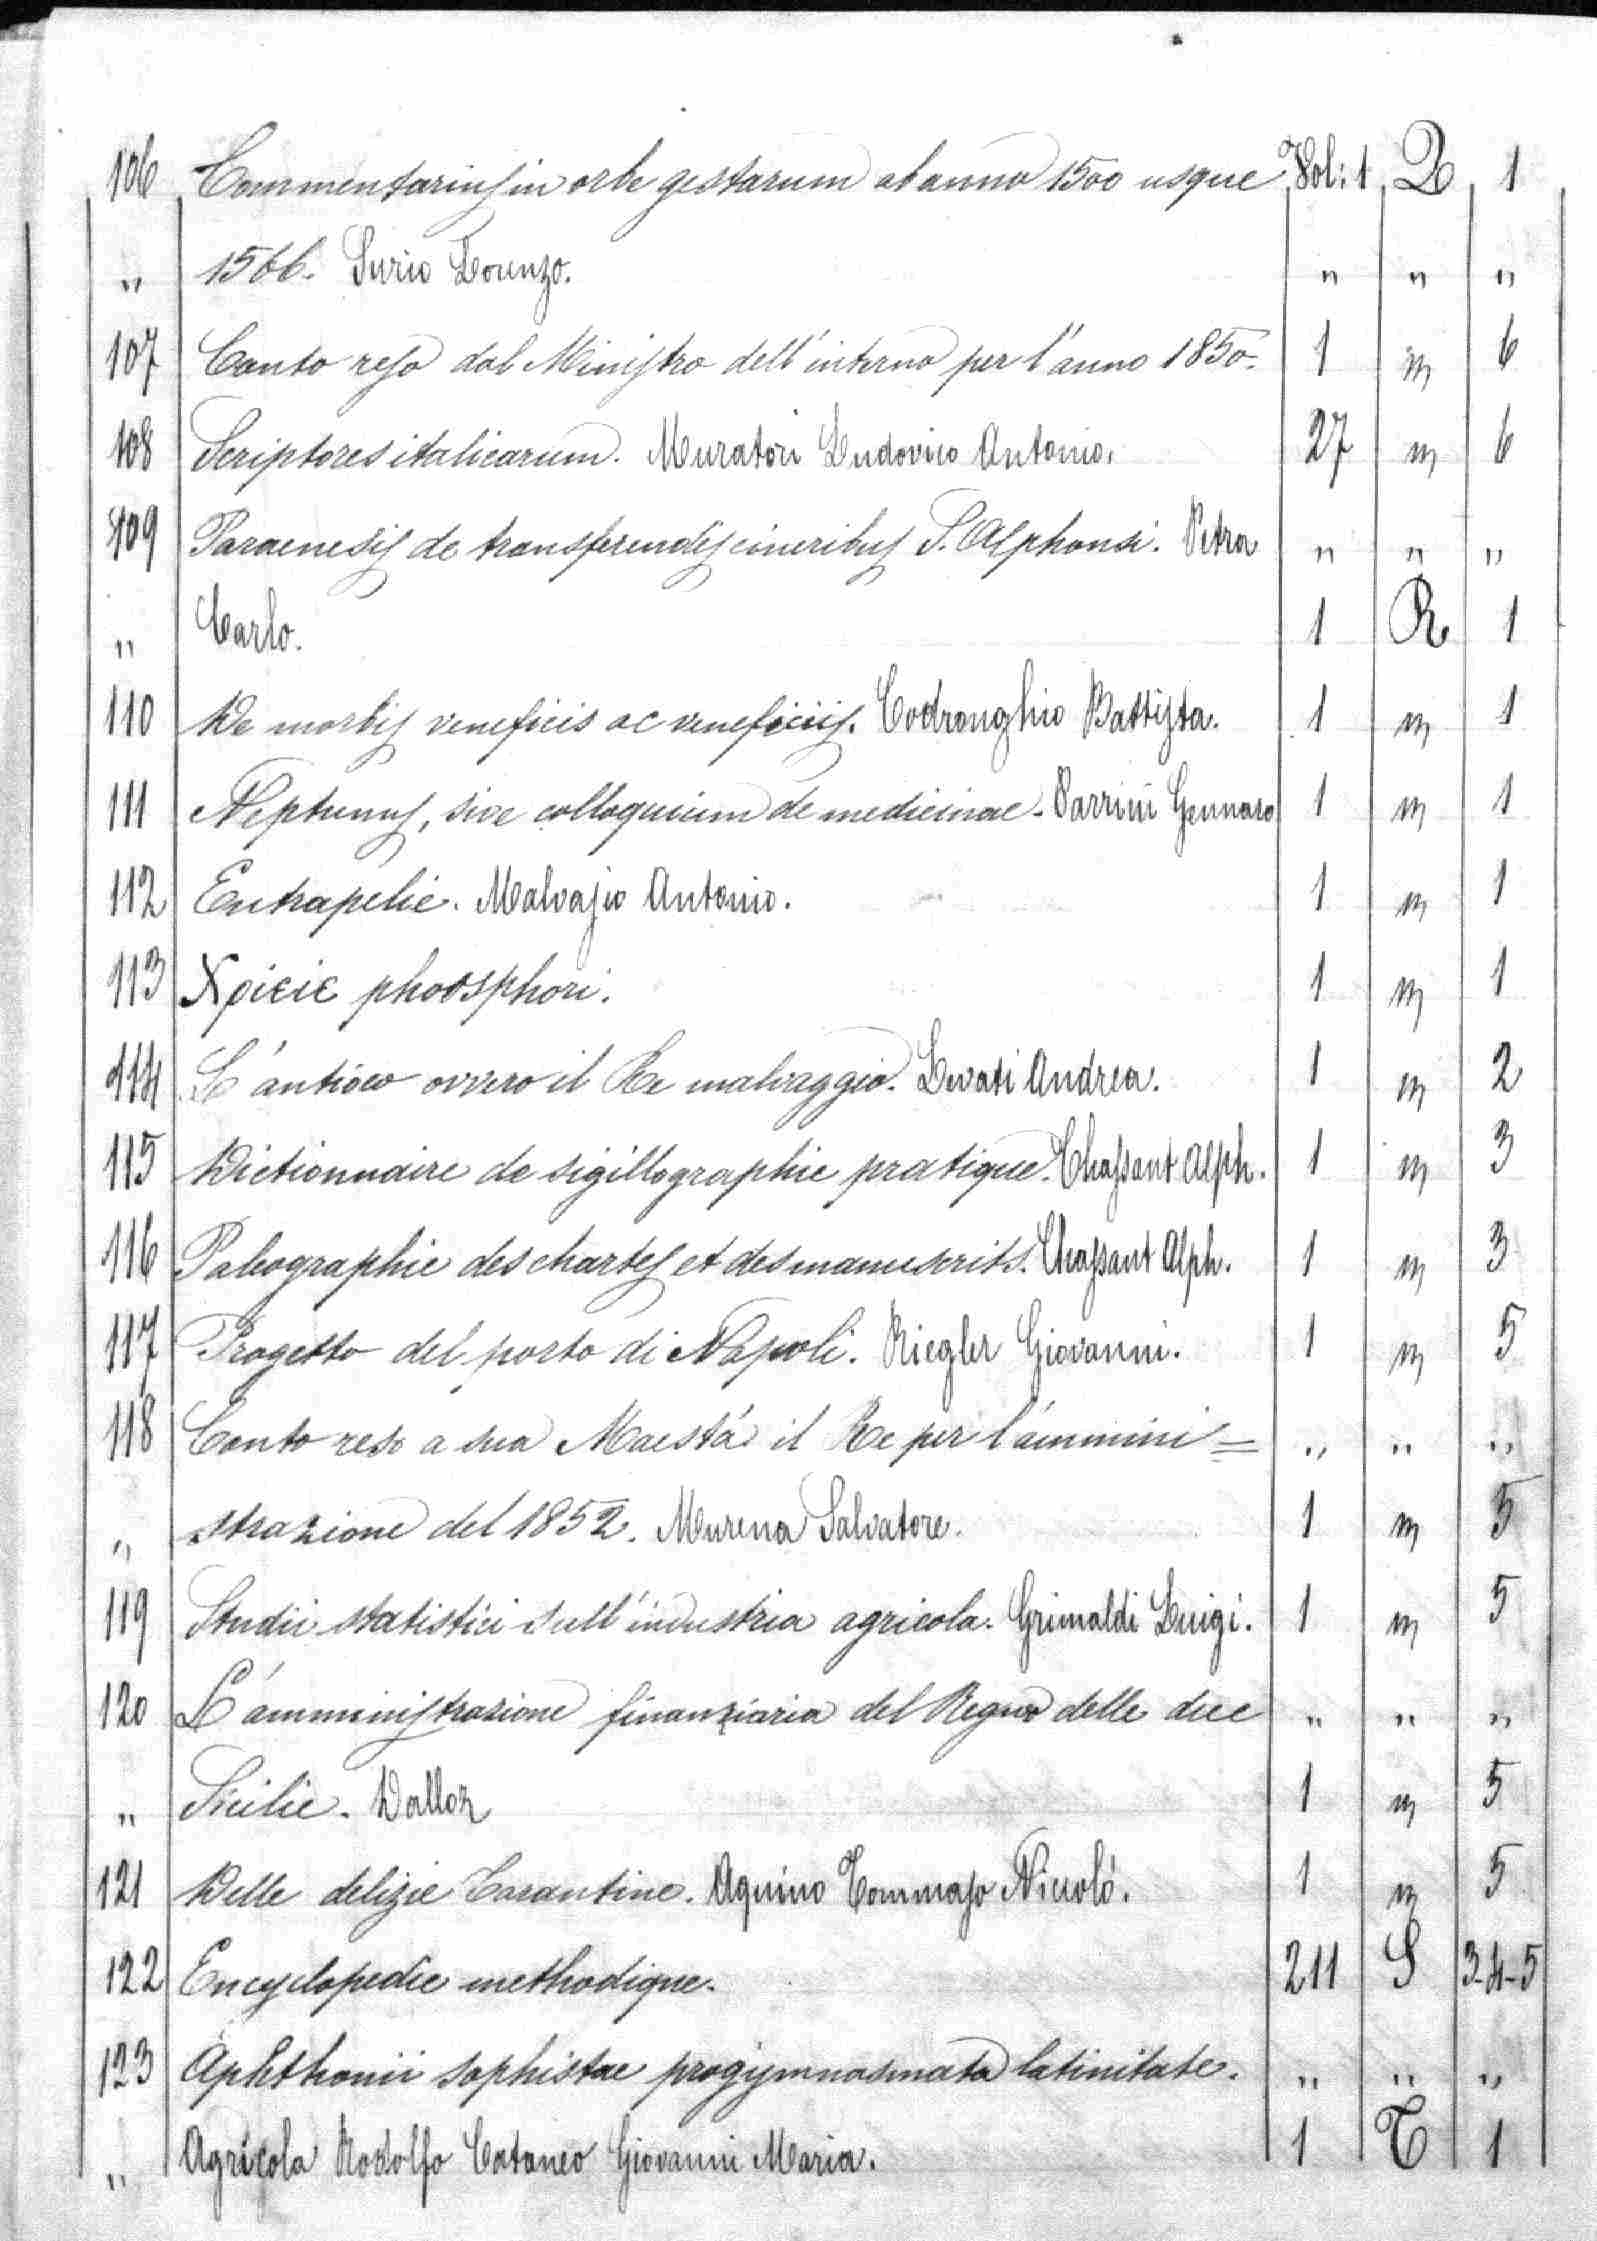 106 Commentarius in orbe gestarum ab anno 1500 usque Vol: 1 Q 1
" 1566. Surio Lorenzo. " " "
107 Conto reso dal Ministro dell'interno per l'anno 1850. 1 " 6
108 Scriptores italicarum. Muratori Ludovico Antonio. 27 " 6
109 Paraenesis de transferendis cineribus S. Alphonsi. Petra " " "
" Carlo. 1 R 1
110 De morbis veneficis ac veneficiis. Codronghio Battista. 1 " 1
111 Neptunus, sive colloquium de medicinae. Parrini Gennaro 1 " 1
112 Eutrapelie. Malvasio Antonio. 1 " 1
113 phoosphori. 1 " 1
114 L'antioco ovvero il Re malvaggio. Levati Andrea. 1 " 2
115 Dictionnaire de sigillographie pratique. Chassant Alph. 1 " 3
116 Paleographie des chartes et des manuscrits. Chassant Alph. 1 " 3
117 Progetto del porto di Napoli. Riegler Giovanni. 1 " 5
118 Conto reso a sua Maestá il Re per l'ammini= " " "
" strazione del 1852. Murena Salvatore. 1 " 5
119 Studii statistici sull'industria agricola. Grimaldi Luigi. 1 " 5
120 L'amministrazione finanziaria del Regno delle due " " "
" Sicilie. Dalloz 1 " 5
121 Delle delizie Tarantine. Aquino Tommaso Niccoló. 1 " 5
122 Encyclopedie methodique. 211 S 3-4-5
123 Aphthonii sophistae progymnasmata latinitate. " " "
" Agricola Rodolfo Cataneo Giovanni Maria. 1 T 1